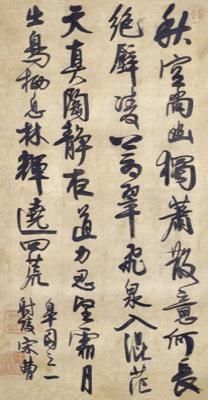 秋空尚幽獨蕭散意何長
絕壁凌翠飛泉入混茫
天真陶靜道力堅霜月
出鳥栖息林輝遶四荒
皋園之一
射陵宋曹